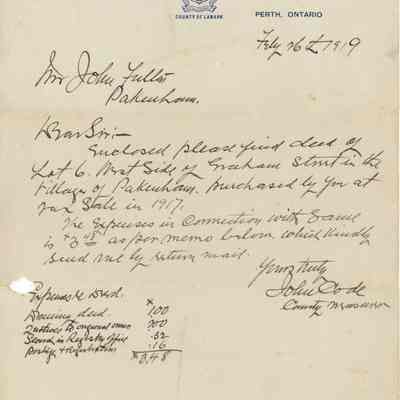 COUNTY OF LANARK
PERTH, ONTARIO
Feby 26th 1919
Mr John Fulton
Pakenham.
Dear Sir:-
Enclosed please find deed of
Lot 6. West Side of Graham Street in the
Village of Pakenham. purchased by you at
Tax Sale in 1917.
The Expenses in Connection with Same
is $3.48 as per memo below which Kindly
Send me by return mail.
Yours truly
John Code
County Treasurer
Expenses re Deed.
Drawing deed. $ 1.00
Notices to original owner 2.00
Search in Registry Office .32
Postage & Registration .16
$3.48